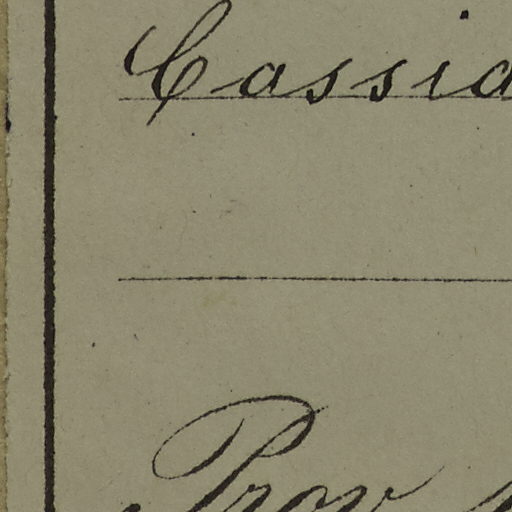 Cassia
Prov